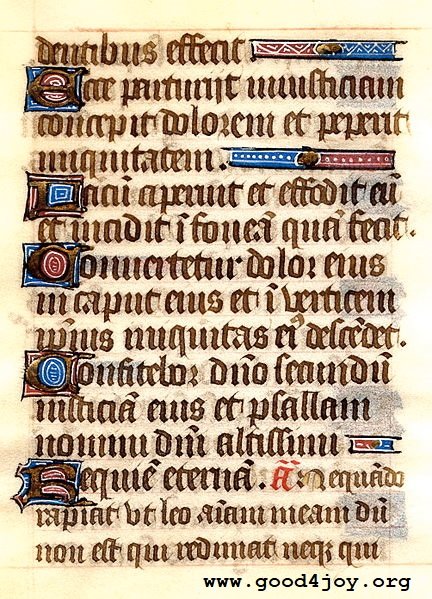 dentibus effecit
Ecce parturijt iniusticiam
concepit dolorem et peperit
iniquitatem.
Lacũ aperuit et effodit eũ
et incidit ĩ foueã quã fecit.
Conuertetur dolor eius
in caput eius et ĩ verticem
ip̃ius iniquitas eiꝰ descẽdet.
Confitebor dño secundũ
iusticiã eius et psallam
nomini dñi altissimi
Requiẽ eternã. ã Nequãdo
rapiat vt leo aĩam meam dũ
non est qui redimat neqꝫ qui
www.good4joy.org